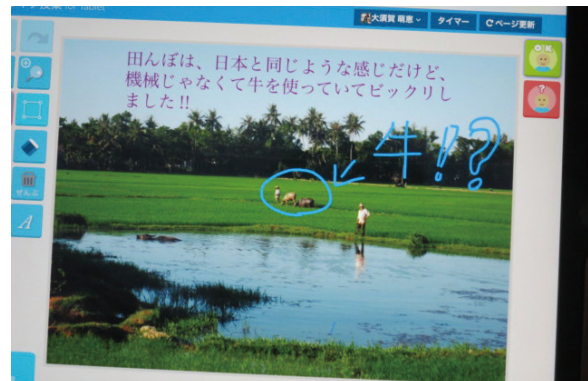 大須賀 萌恵
タイマー
ページ更新
田んぼは、日本と同じような感じだけど、
機械じゃなくて牛を使っていてビックリし
ました!!
牛!?
ぜんぶ
A